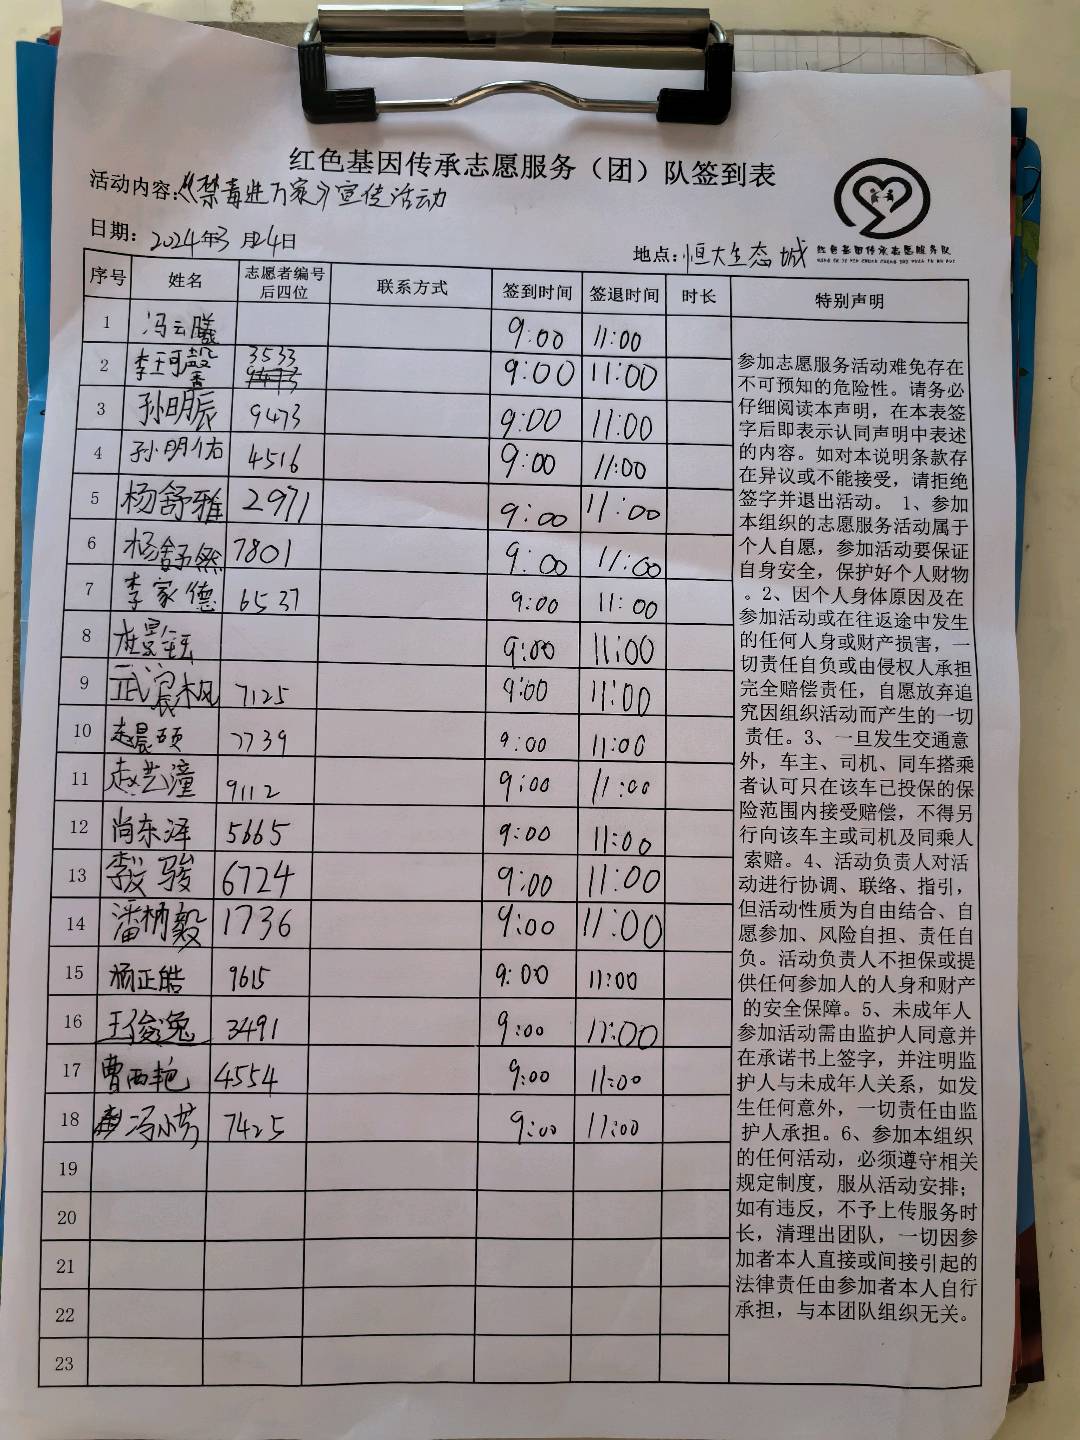 红色基因传承志愿服务（团）队签到表
活动内容：《禁毒进万家》宣传活动
日期：2024年3月24日
地点：恒大生态城
红色基因传承志愿服务队
序号 姓名 志愿者编号后四位 联系方式 签到时间 签退时间 时长 特别声明
1 冯云曦 9:00 11:00
2 3533 9:00 11:00
3 孙明辰 9473 9:00 11:00
4 孙明佑 4516 9:00 11:00
5 杨舒雅 2971 9:00 11:00
6 杨舒然 7801 9:00 11:00
7 李家德 6537 9:00 11:00
8 9:00 11:00
9 7125 9:00 11:00
10 赵晨硕 7739 9:00 11:00
11 赵艺潼 9112 9:00 11:00
12 尚东泽 5665 9:00 11:00
13 骏 6724 9:00 11:00
14 潘柄毅 1736 9:00 11:00
15 杨正皓 9615 9:00 11:00
16 王俊逸 3491 9:00 11:00
17 曹西艳 4554 9:00 11:00
18 冯小芳 7425 9:00 11:00
19
20
21
22
23
参加志愿服务活动难免存在
不可预知的危险性。请务必
仔细阅读本声明，在本表签
字后即表示认同声明中表述
的内容。如对本说明条款存
在异议或不能接受，请拒绝
签字并退出活动。 1、参加
本组织的志愿服务活动属于
个人自愿，参加活动要保证
自身安全，保护好个人财物
。2、因个人身体原因及在
参加活动或在往返途中发生
的任何人身或财产损害，一
切责任自负或由侵权人承担
完全赔偿责任，自愿放弃追
究因组织活动而产生的一切
责任。3、一旦发生交通意
外，车主、司机、同车搭乘
者认可只在该车已投保的保
险范围内接受赔偿，不得另
行向该车主或司机及同乘人
索赔。4、活动负责人对活
动进行协调、联络、指引，
但活动性质为自由结合、自
愿参加、风险自担、责任自
负。活动负责人不担保或提
供任何参加人的人身和财产
的安全保障。5、未成年人
参加活动需由监护人同意并
在承诺书上签字，并注明监
护人与未成年人关系，如发
生任何意外，一切责任由监
护人承担。6、参加本组织
的任何活动，必须遵守相关
规定制度，服从活动安排；
如有违反，不予上传服务时
长，清理出团队，一切因参
加者本人直接或间接引起的
法律责任由参加者本人自行
承担，与本团队组织无关。